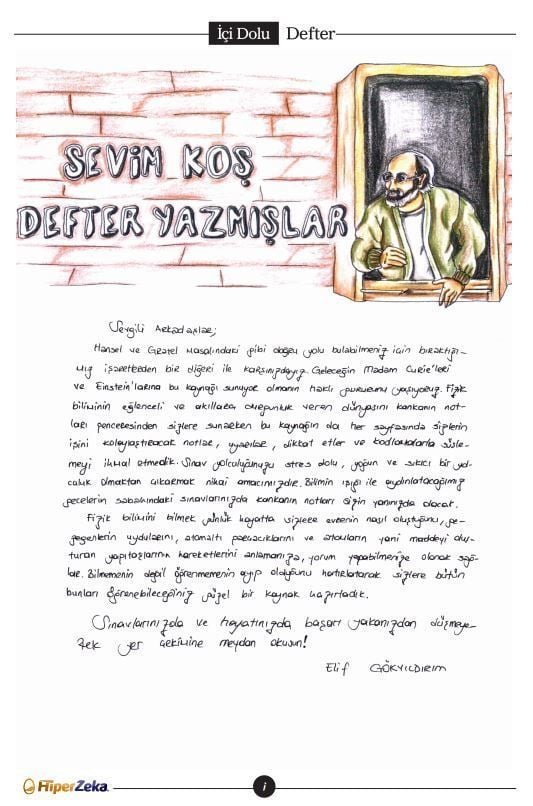 İçi Dolu Defter
SEVİM KOŞ
DEFTER YAZMIŞLAR
Sevgili Arkadaşlar;
Hansel ve Gratel masalındaki gibi doğru yolu bulabilmeniz için bıraktığı-
mız işaretlerden bir diğeri ile karşınızdayız. Geleceğin Madam Curie'leri
ve Einstein'larına bu kaynağı sunuyor olmanın haklı gururunu yaşıyoruz. Fizik
biliminin eğlenceli ve akıllara durgunluk veren dünyasını kankanın not-
ları penceresinden sizlere sunarken bu kaynağın da her sayfasında sizlerin
işini kolaylaştıracak notlar, uyarılar, dikkat etler ve kodlamalarla süsle-
meyi ihmal etmedik. Sınav yolculuğunuzu stres dolu, yoğun ve sıkıcı bir yol-
culuk olmaktan çıkarmak nihai amacımızdır. Bilimin ışığı ile aydınlatacağımız
gecelerin sabahındaki sınavlarınızda kankanın notları sizin yanınızda olacak.
Fizik bilimini bilmek günlük hayatta sizlere evrenin nasıl oluştuğunu, ge-
zegenlerin uydularını, atomaltı parçacıklarını ve atomların yani maddeyi oluş-
turan yapıtaşlarının hareketlerini anlamanıza, yorum yapabilmenize olanak sağ-
lar. Bilmemenin değil öğrenmemenin ayıp olduğunu hatırlatarak sizlere bütün
bunları öğrenebileceğiniz güzel bir kaynak hazırladık.
Sınavlarınızda ve hayatınızda başarı yakanızdan düşmeye-
rek yer çekimine meydan okusun!
Elif GÖKYILDIRIM
HiperZeka
i